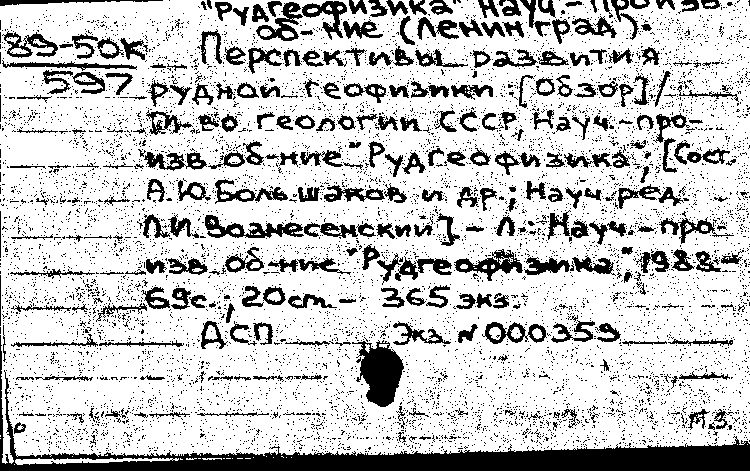 "Рудгеофизика" науч.-произв.
об-ние (Ленинград).
89-50к
597
Перспективы развития
рудной геофизики: [Обзор] /
М-во геологии СССР, Науч.-про-
изв. об-ние "Рудгеофизика"; [Сост.
А.Ю. Большаков и др.; Науч. ред.
Л.И. Вознесенский]. - Л.: Науч.-про-
изв. об-ние "Рудгеофизика", 1988. -
69с.; 20см. - 365 экз.
ДСП. Экз. № 000359
М.З.